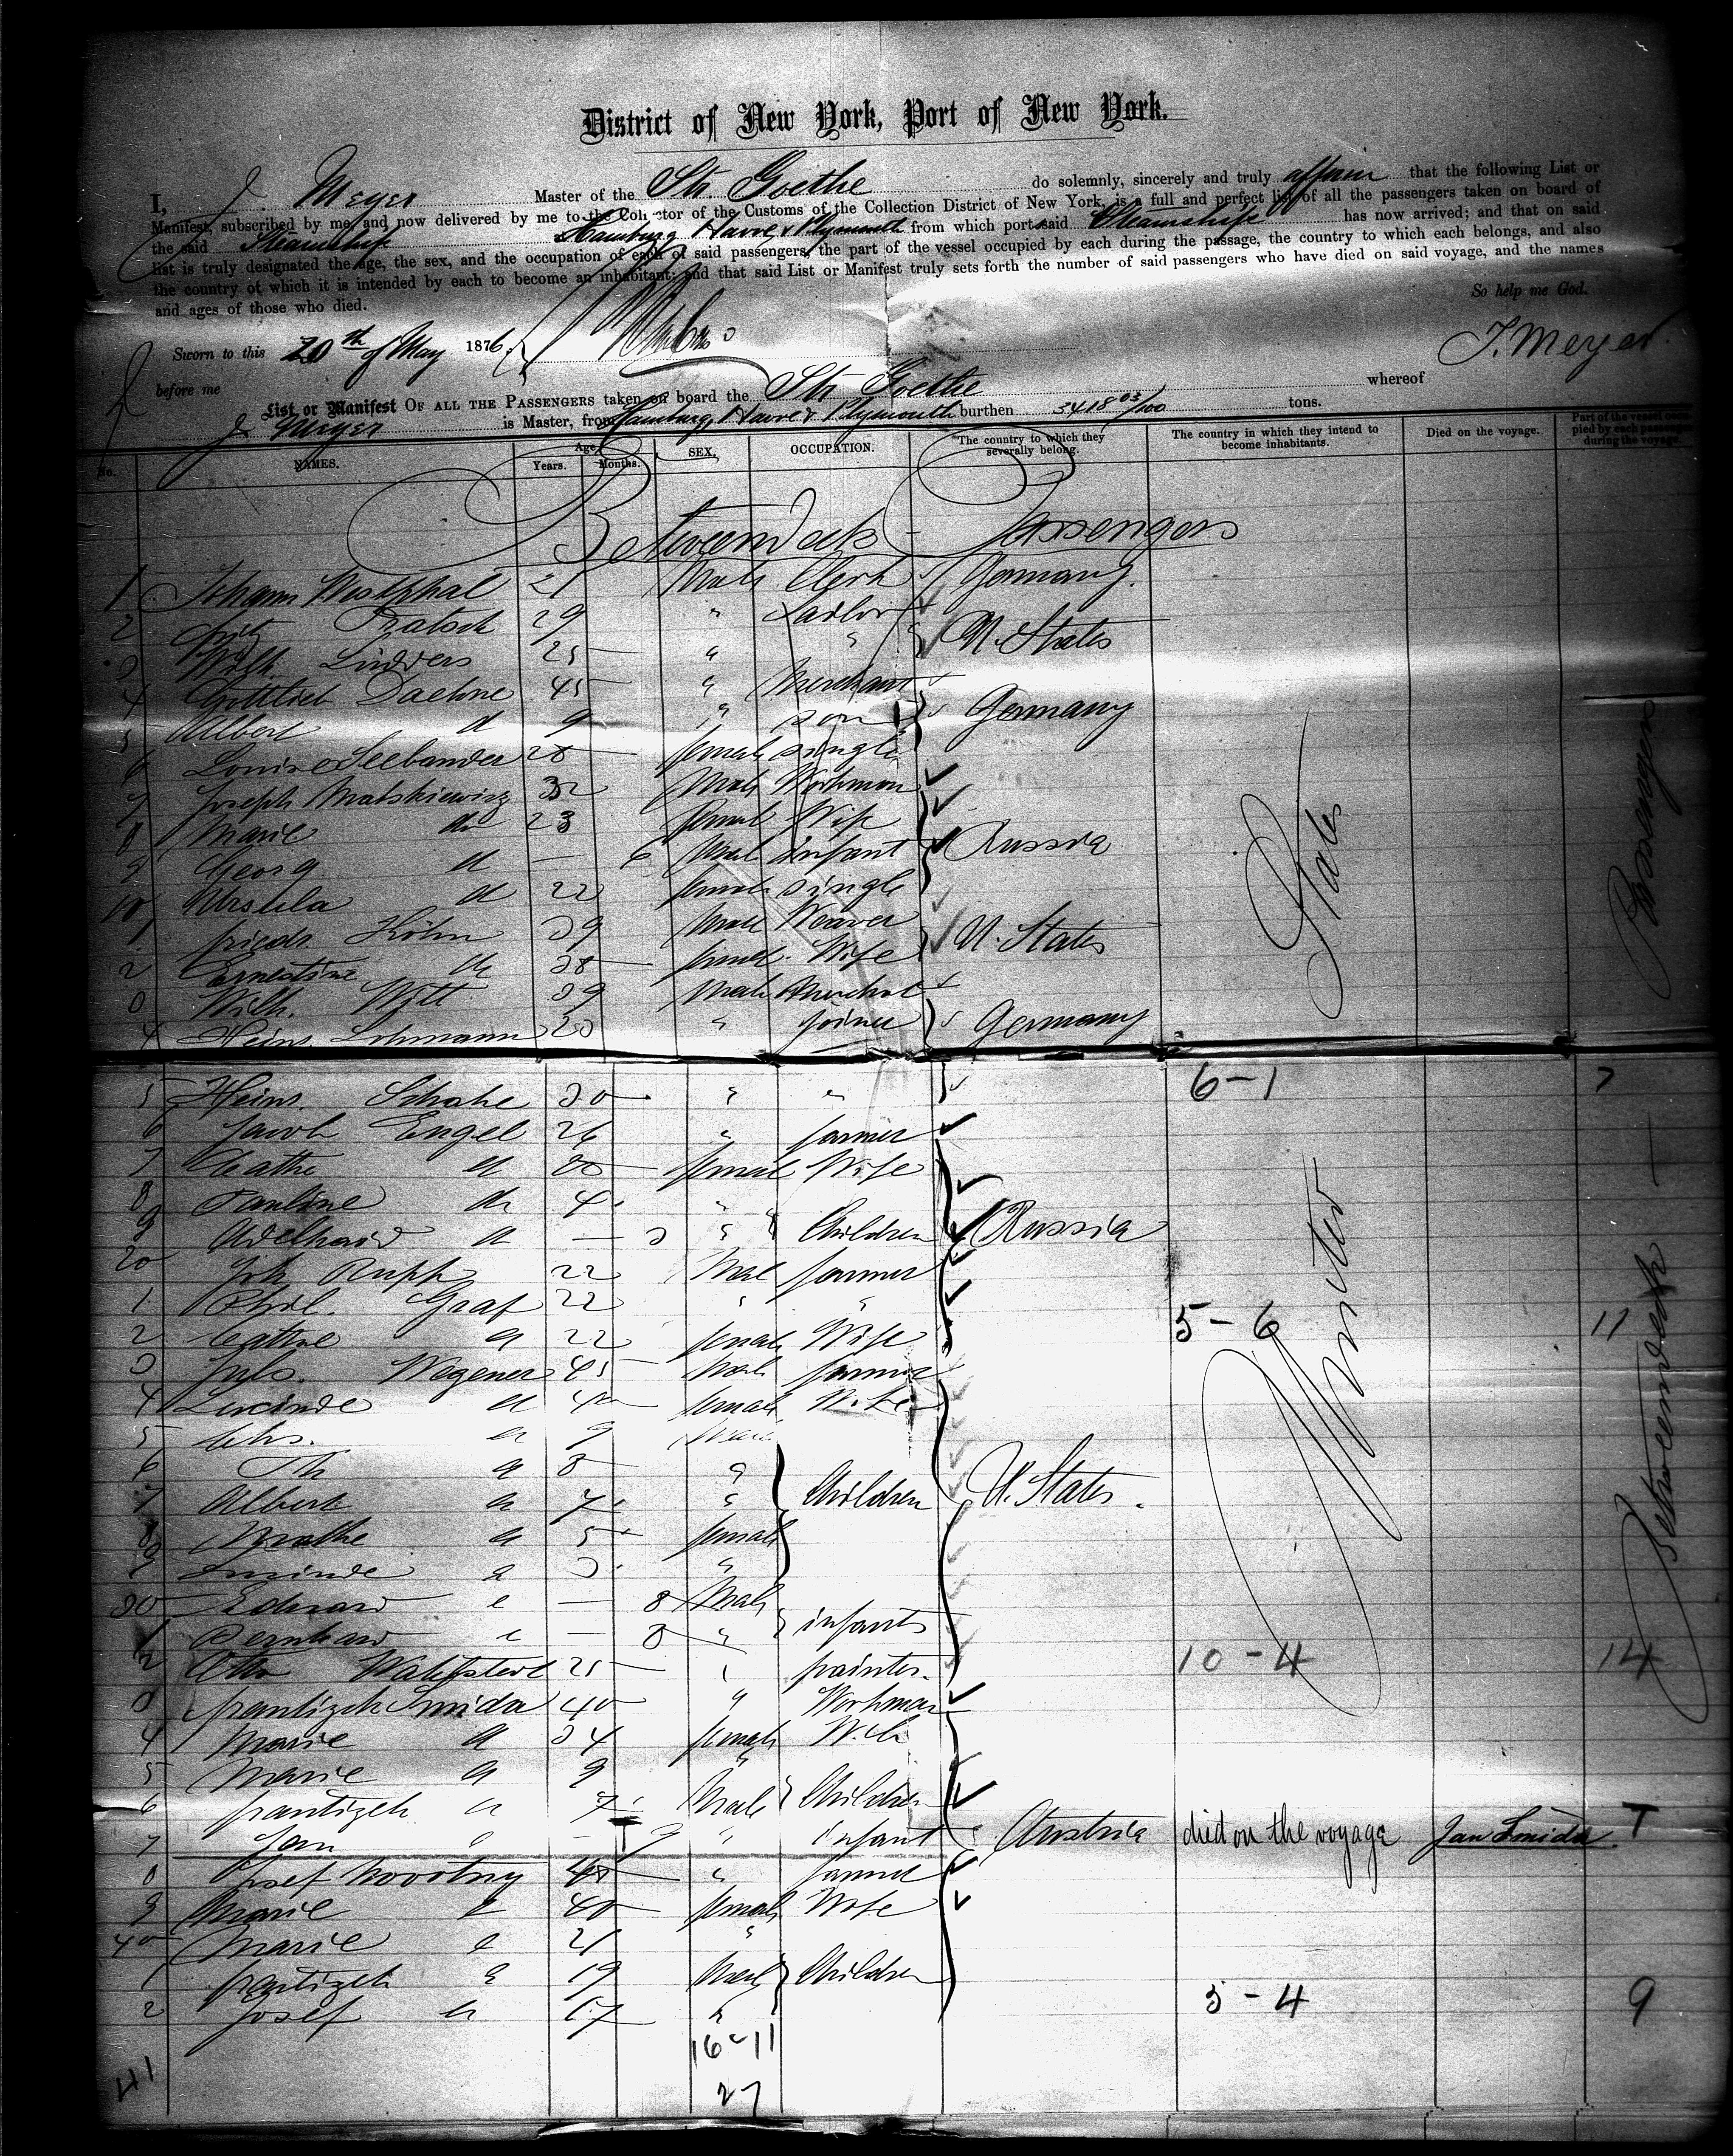 District of New York, Port of New York.
I, J. Meyer Master of the Str. Goethe do solemnly, sincerely and truly affirm that the following List or
Manifest, subscribed by me, and now delivered by me to the Collector of the Customs of the Collection District of New York, is a full and perfect list of all the passengers taken on board of
the said Steamship Hamburg, Havre & Plymouth from which port said Steamship has now arrived; and that on said
list is truly designated the age, the sex, and the occupation of each of said passengers, the part of the vessel occupied by each during the passage, the country to which each belongs, and also
the country of which it is intended by each to become an inhabitant; and that said List or Manifest truly sets forth the number of said passengers who have died on said voyage, and the names
and ages of those who died.
So help me God.
Sworn to this 20th of May 1876
J. Meyer
before me
List or Manifest OF ALL THE PASSENGERS taken on board the Str. Goethe whereof
J. Meyer is Master, from Hamburg, Havre & Plymouth burthen 3418 03/100 tons.
No. NAMES. Age Years. Months. SEX. OCCUPATION. The country to which they severally belong. The country in which they intend to become inhabitants. Died on the voyage. Part of the vessel occupied by each passenger during the voyage.
Betweendeck Passengers
1 Johann Westphal 21 Male Clerk Germany.
2 Fritz 29 " Tailor
3 Wilh. Lüdders 25 " " U. States
4 Gottlieb Daehne 45 " Merchant
5 Albert d 9 " son Germany
6 Louise Seebander 28 female single
7 Joseph Matskiewicz 32 Male Workman
8 Marie do 23 female Wife
9 Georg d — 6 Male infant Russia
10 Ursula d 22 female single
1 Friedr Köhn 39 Male Weaver
2 Ernestine do 38 female Wife U. States
3 Wilh. Witt 39 Male Merchat
4 Heinr. Lohmann 20 " joiner Germany
5 Heinr. Schake 30 " " 6-1 7
6 Jacob Engel 26 " farmer
7 Cathe d female Wife
8 Pauline do 4 "
9 Adelhaid d — 3 " Children Russia
20 Joh Rupp 22 Male farmer
1 Phil. Graf 22 " " 5-6 11
2 Cathe d 22 female Wife
3 Juls. Wegener 45 Male farmer
4 Lucinde d 40 female Wife
5 Chs. d 9 Male
6 Th d 8 "
7 Albert d 7 " Children U. States.
8 d 5 female
9 d 3 "
30 Edward d — 8 Male
1 Bernhard d — 8 " infants
2 Otto 25 " painter. 10-4 14
3 frantizek Smida 40 " Workman
4 Marie d 34 female Wife
5 Marie d 9 "
6 frantizek d 7 Male Children
7 Jan d — 9 " infant Austria died on the voyage Jan Smida
8 Josef Novotny 48 " farmer
9 Marie d 40 female Wife
40 Marie d 21 "
1 frantizek d 19 Male Children
2 Josef d 17 " 5-4 9
United States
Betweendeck Passengers
16-11
27
41